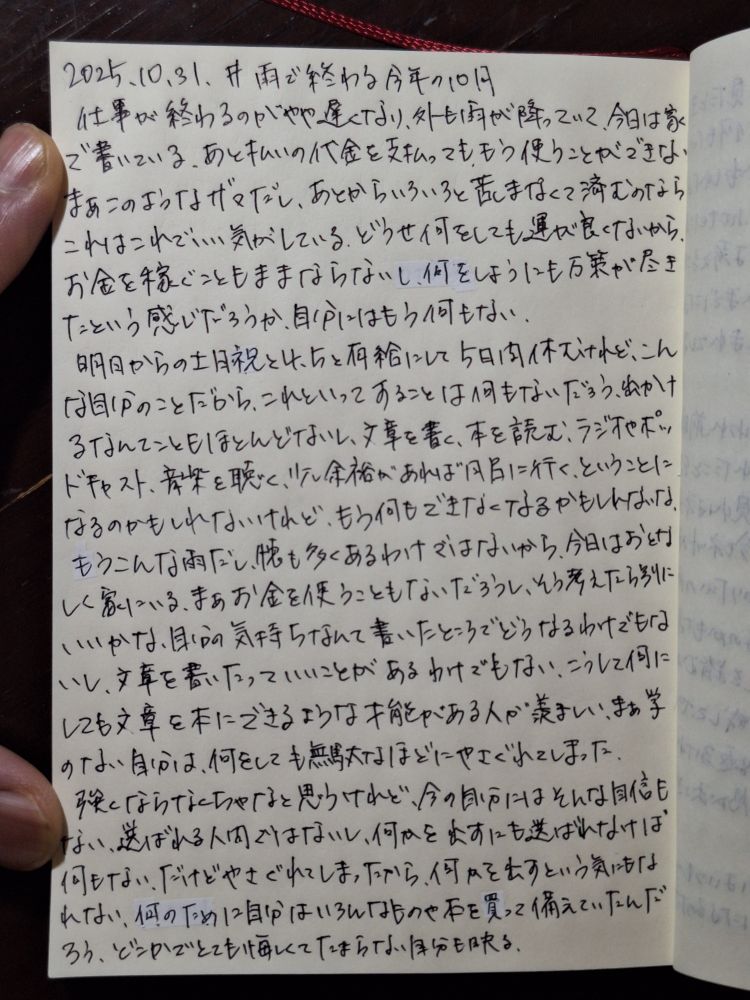 2025.10.31. #雨で終わる今年の10月
仕事が終わるのがやや遅くなり、外も雨が降っていて、今日は家
で書いている。あと払いの代金を支払ってももう使うことができない
まぁこのようなザマだし、あとからいろいろと苦しまなくて済むのなら
これはこれでいい気がしている。どうせ何をしても運が良くないから、
お金を稼ぐこともままならないし、何をしようにも万策が尽き
たという感じだろうか、自分にはもう何もない。
明日からの土日祝と4、5と有給にして5日間休むけれど、こん
な自分のことだから、これといってあることは何もないだろう、出かけ
るなんてこともほとんどないし、文章を書く、本を読む、ラジオやポッ
ドキャスト、音楽を聴く、少し余裕があれば月呂に行く、ということに
なるのかもしれないけれど、もう何もできなくなるかもしれないな、
もうこんな雨だし、腹も多くあるわけではないから、今日はおとな
しく家にいる。まぁお金を使うこともないだろうし、そう考えたら別に
いいかな、自分の気持ちなんて書いたところでどうなるわけでもな
いし、文章を書いたっていいことがあるわけでもない、こうして何に
しても文章を本にできるような才能がある人が羨ましい、まぁ学
のない自分は、何をしても無駄なほどにやさぐれてしまった。
強くならなくちゃなと思うけれど、今の自分にはそんな自信も
ない、選ばれる人間ではないし、何かを出すにも選ばれなければ
何もない、だけどやさぐれてしまったから、何かを出すという気にもな
れない、何のために自分はいろんなものや本を買って備えていたんだ
ろう、どこかでとても悔しくてたまらない自分も映る。